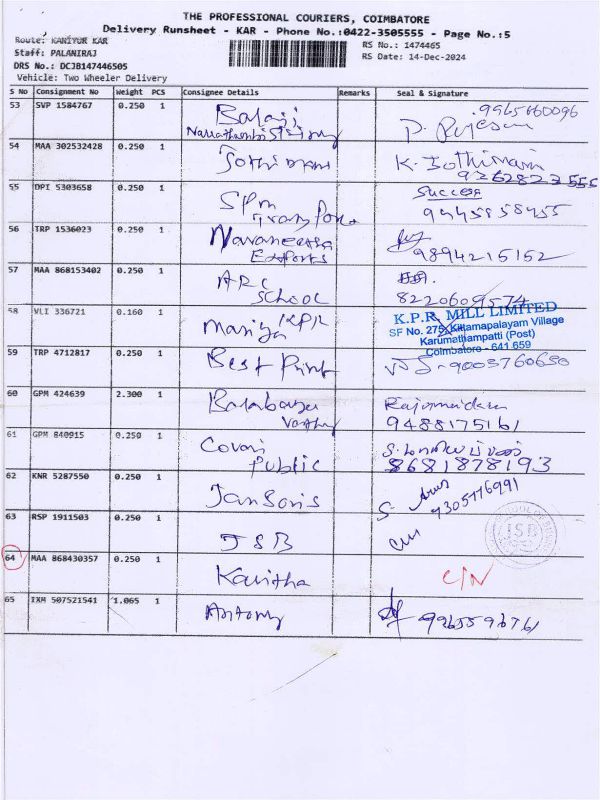 THE PROFESSIONAL COURIERS, COIMBATORE
Delivery Runsheet - KAR - Phone No.:0422-3505555 - Page No.:5
Route: KANIYUR KAR
RS No.: 1474465
Staff: PALANIRAJ
RS Date: 14-Dec-2024
DRS No.: DCJB147446505
Vehicle: Two Wheeler Delivery
S No Consignment No Weight PCS Consignee Details Remarks Seal & Signature
53 SVP 1584767 0.250 1 Balaji 9965660096
54 MAA 302532428 0.250 1 Jothimani K. Jothimani
9262822555
55 DPI 5303658 0.250 1 SPM Success
Transport 9445858455
56 TRP 1536023 0.250 1 Navaneetha
Exports 9894215152
57 MAA 868153402 0.250 1 ARC
School 8220609574
58 VLI 336721 0.160 1 Mariya KPR K.P.R. MILL LIMITED
SF No. 275, Kittamapalayam Village
Karumathampatti (Post)
Coimbatore - 641 659
59 TRP 4712817 0.250 1 Best Print 9003760650
60 GPM 424639 2.300 1
9488175161
61 GPM 840915 0.250 1 Covai
Public 8681878193
62 KNR 5287550 0.250 1 Jansons 9305776991
63 RSP 1911503 0.250 1 JSB JSB
64 MAA 868430357 0.250 1 Kavitha C/N
65 IXM 507521541 1.065 1 Antony 9965596761